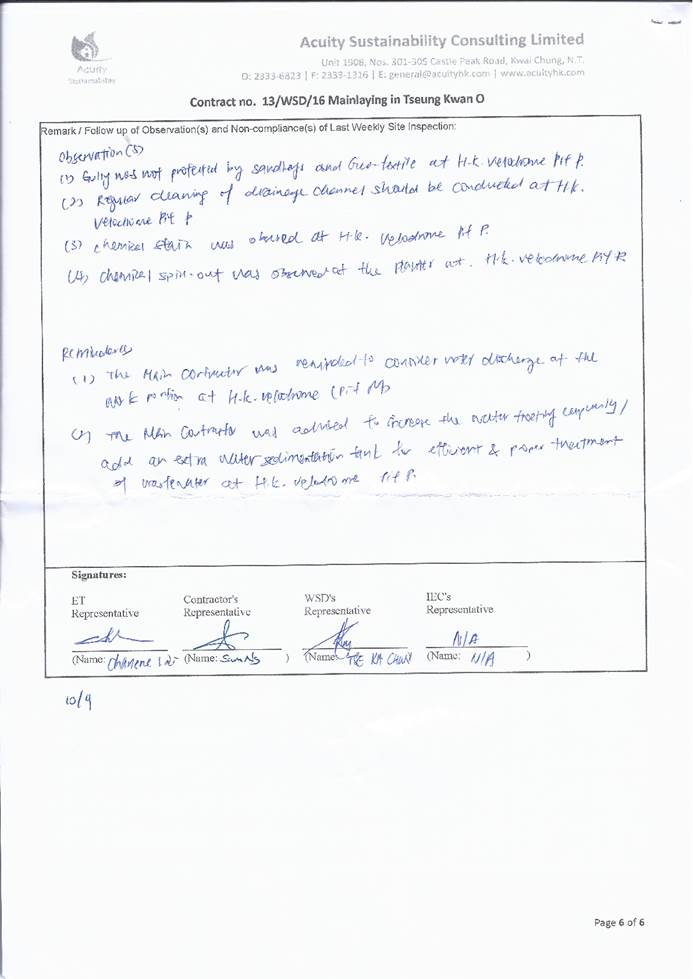 Acuity Sustainability Consulting Limited
Acuity
Sustainability
Unit 1908, Nos. 301-305 Castle Peak Road, Kwai Chung, N.T.
O: 2333-6823 | F: 2333-1316 | E: general@acuityhk.com | www.acuityhk.com
Contract no. 13/WSD/16 Mainlaying in Tseung Kwan O
Remark / Follow up of Observation(s) and Non-compliance(s) of Last Weekly Site Inspection:
Observation(s)
(1) Gully was not protected by sandbags and Geo-textile at H.K. Velodrome Pit P.
(2) Regular cleaning of drainage channel should be conducted at H.K.
Velodrome Pit P
(3) chemical stain was observed at H.K. Velodrome Pit P.
(4) chemical spin-out was observed at the planter at. H.K. velodrome Pit P.
Reminder(s)
(1) The Main Contractor was reminded to consider water discharge at the
work portion at H.K. velodrome (Pit M)
(2) The Main Contractor was advised to increase the water treating /
add an extra water sedimentation tank for efficient & proper treatment
of wastewater at H.K. velodrome Pit P.
Signatures:
ET Representative
Contractor's Representative
WSD's Representative
IEC's Representative
N/A
(Name:
(Name: )
(Name: TSE KA
(Name: N/A )
10/9
Page 6 of 6